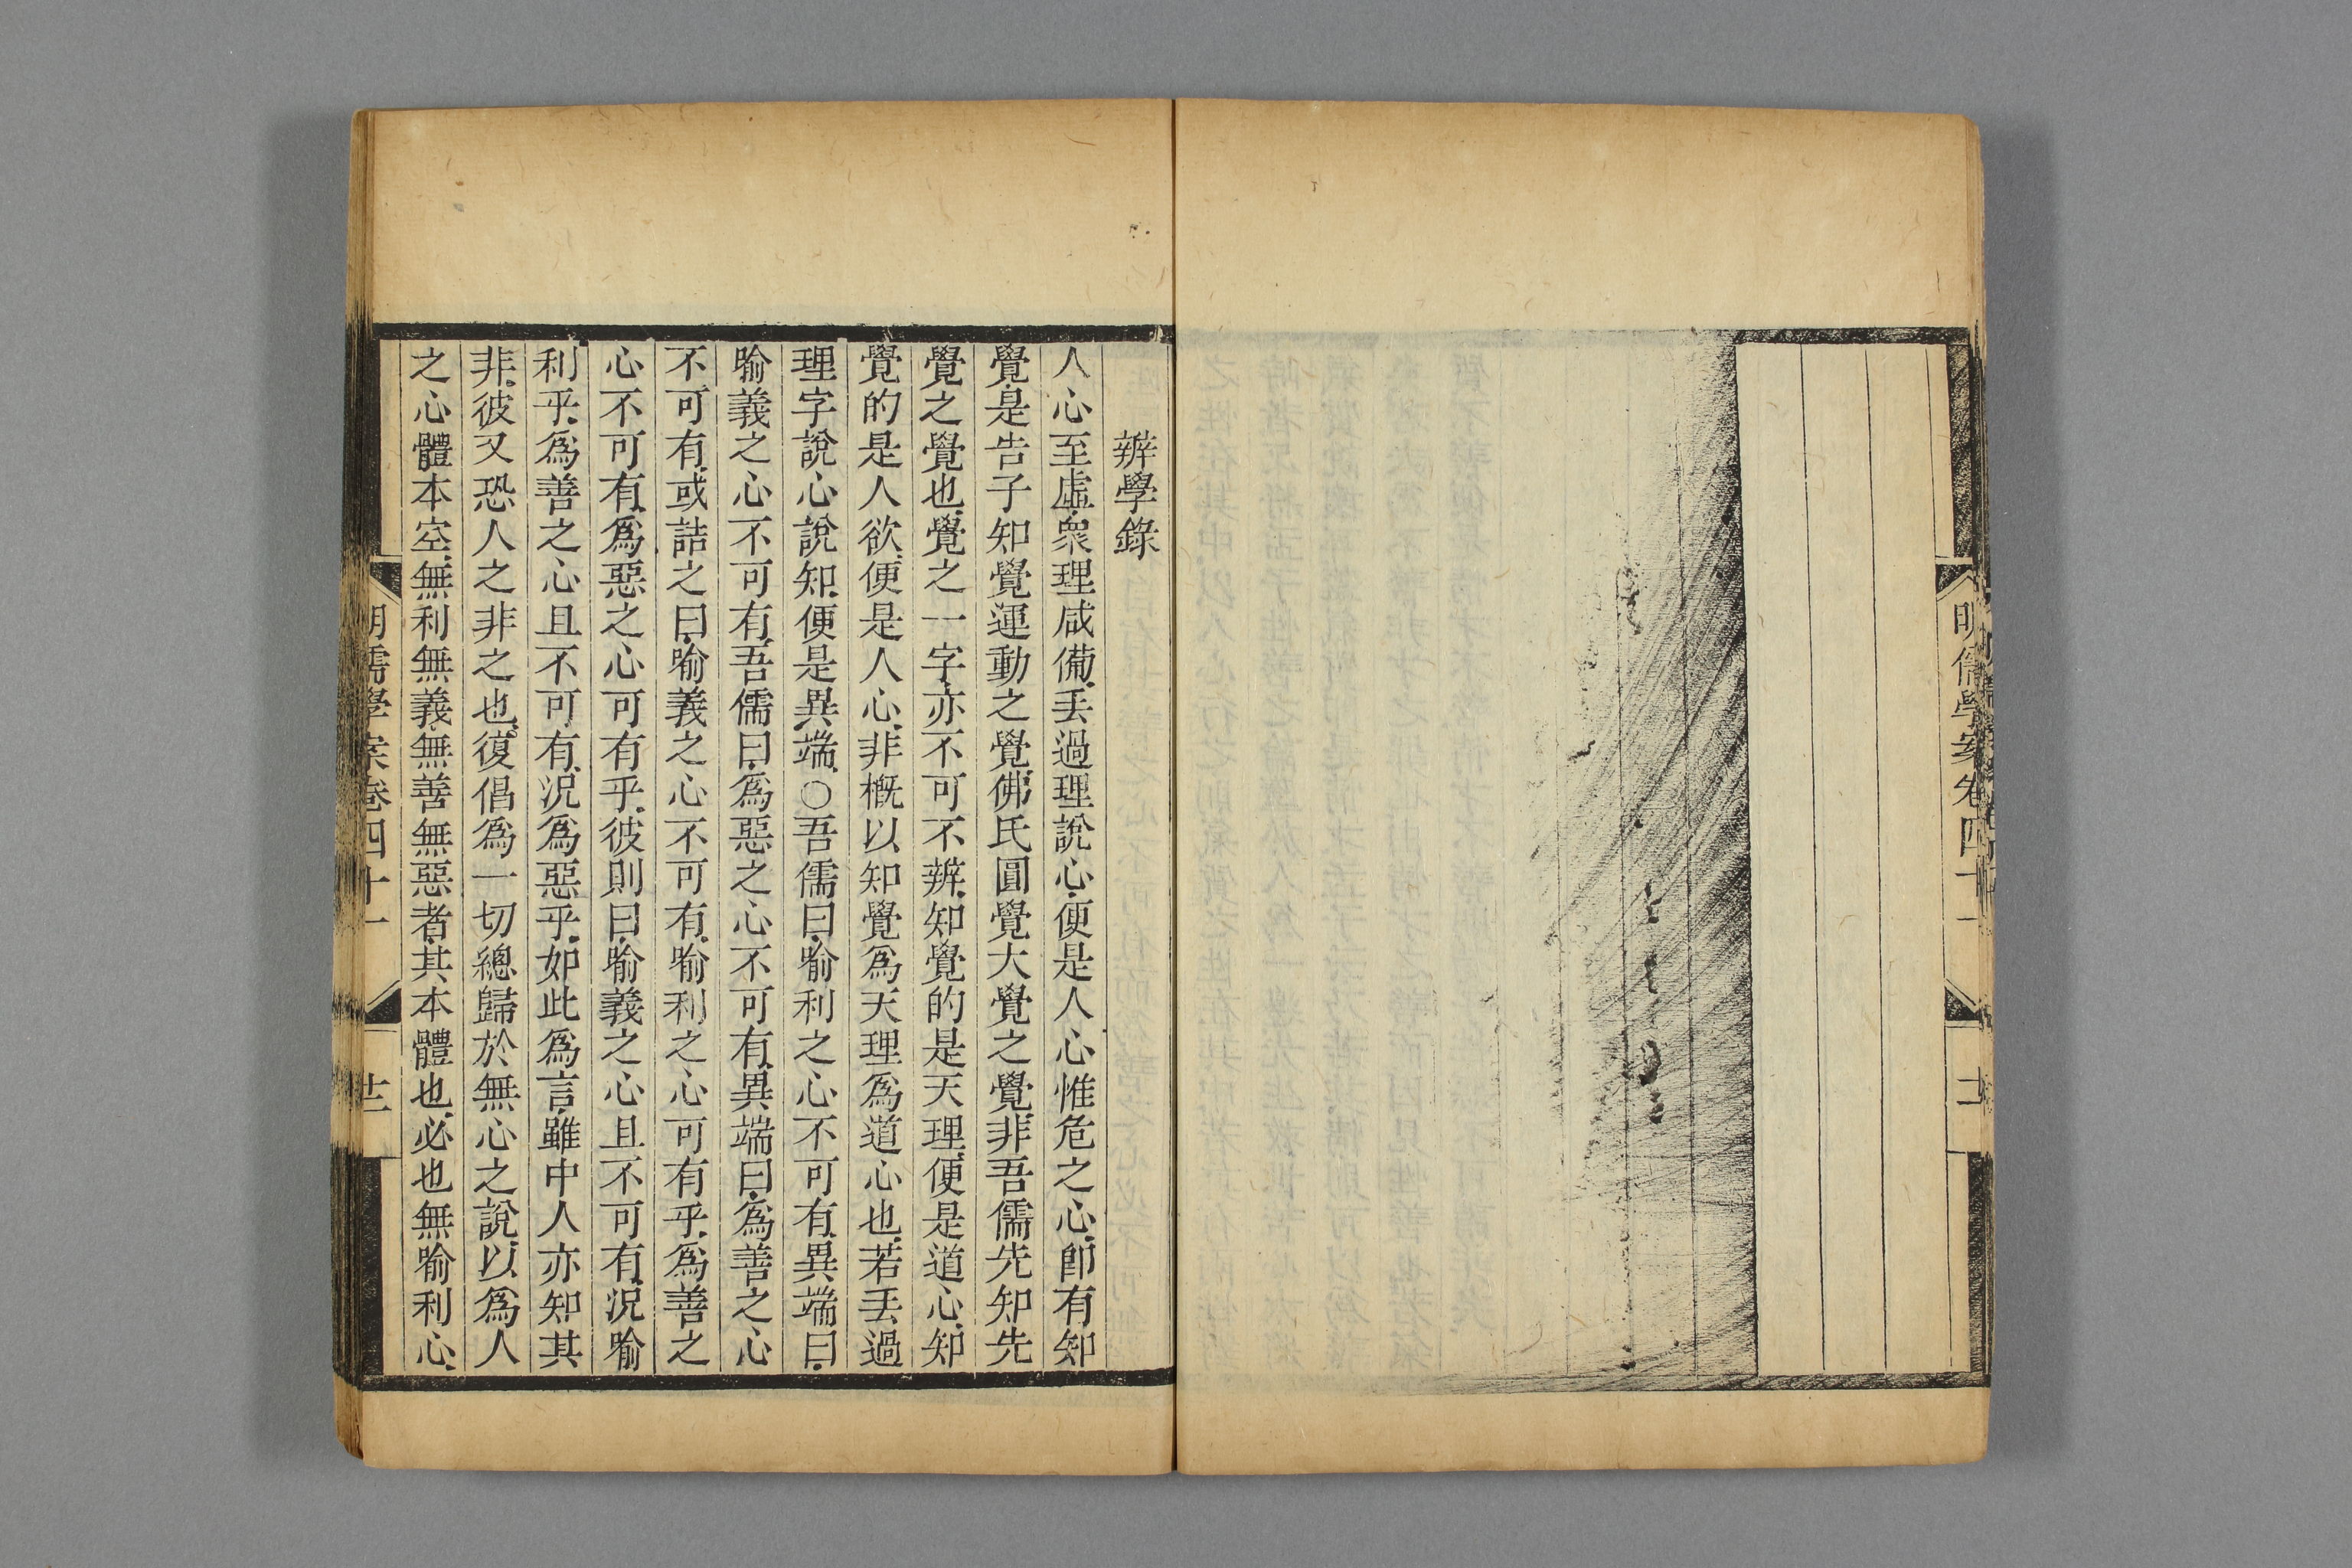 明儒學案卷四十一
辨學錄
人心至虛衆理咸備丢過理說心便是人心惟危之心卽有知
覺是告子知覺運動之覺佛氏圓覺大覺之覺非吾儒先知先
覺之覺也覺之一字亦不可不辨知覺的是天理便是道心知
覺的是人欲便是人心非槪以知覺爲天理爲道心也若丢過
理字說心說知便是異端○吾儒曰喻利之心不可有異端曰
喻義之心不可有吾儒曰爲惡之心不可有異端曰爲善之心
不可有或詰之曰喻義之心不可有喻利之心可有乎爲善之
心不可有爲惡之心可有乎彼則曰喻義之心且不可有況喻
利乎爲善之心且不可有況爲惡乎如此爲言雖中人亦知其
非彼又恐人之非之也復倡爲一切總歸於無心之說以爲人
之心體本空無利無義無善無惡者其本體也必也無喻利心
明儒學案卷四十一